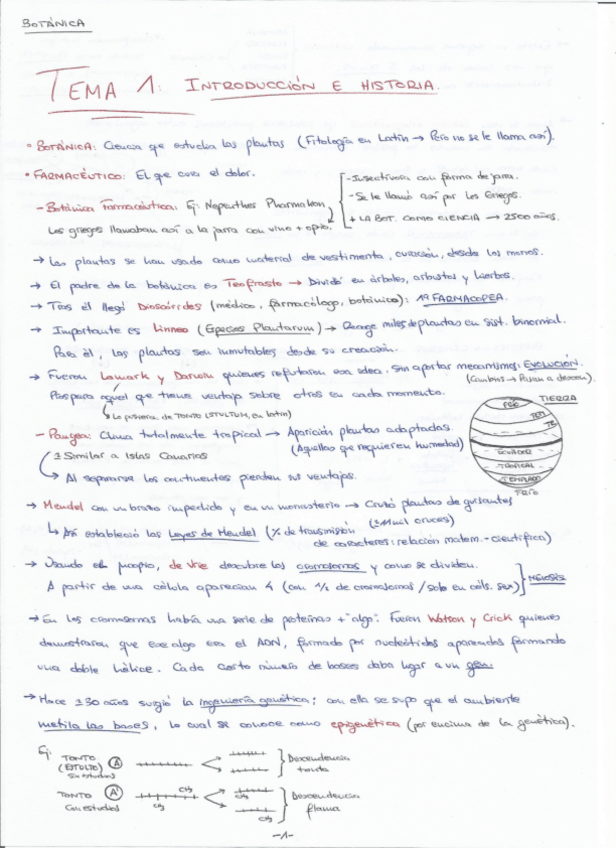 BOTÁNICA
TEMA 1: INTRODUCCIÓN E HISTORIA.
• BOTÁNICA: Ciencia que estudia las plantas (Fitología en Latín → Pero no se le llama así).
• FARMACÉUTICO: El que cura el dolor.
- Botánica Farmacéutica: Ej: Nepenthes Pharmakon
Los griegos llamaban así a la jarra con vino + opio.
- Insectívora con forma de jarra.
- Se le llamó así por los Griegos.
+ LA BOT. COMO CIENCIA → 2500 años.
→ Las plantas se han usado como material de vestimenta, curación, desde los monos.
→ El padre de la botánica es Teofrasto → Dividió en árboles, arbustos y hierbas.
→ Tras él llegó Dioscórides (médico, farmacólogo, botánico): 1ª FARMACOPEA.
→ Importante es Linneo (Species Plantarum) → Recoge miles de plantas en Sist. binomial.
Para él, las plantas son inmutables desde su creación.
→ Fueron Lamark y Darwin quienes refutaron esa idea. Sin aportar mecanismos: EVOLUCIÓN.
(Cambios → Pasan a descen.)
Prospara aquel que tiene ventaja sobre otros en cada momento.
↳ Lo pusiera de TONTO (STULTUM, en latín)
- Pangea: Clima totalmente tropical → Aparición plantas adaptadas.
± Similar a Islas Canarias
(Aquellas que requieren humedad)
→ Al separarse los continentes pierden sus ventajas.
TIERRA
FRÍO
TEM
TR
ECUADOR
TROPICAL
TEMPLADO
FRÍO
→ Mendel con un brazo impedido y en un monasterio → Cruzó plantas de guisantes
(±14mil cruces)
↳ Así estableció las Leyes de Mendel (% de transmisión
de caracteres: relación matem.-científica)
→ Usando el propio, de Vrie descubre los cromosomas y como se dividen.
A partir de una célula aparecían 4 (con 1/2 de cromosomas / solo en céls. sex)
MEIOSIS
→ En los cromosomas había una serie de proteínas + "algo": Fueron Watson y Crick quienes
demostraron que ese algo era el ADN, formado por nucleótidos apareados formando
una doble hélice. Cada cierto número de bases daba lugar a un gen.
→ Hace ±30 años surgió la ingeniería genética; con ella se supo que el ambiente
metila las bases, lo cual se conoce como epigenética (por encima de la genética).
Ej: TONTO (A)
(ESTULTO)
Sin estudios
Descendencia
tonta
TONTO (A')
Con estudios
CH3
CH3
CH3
CH3
Descendencia
-1-